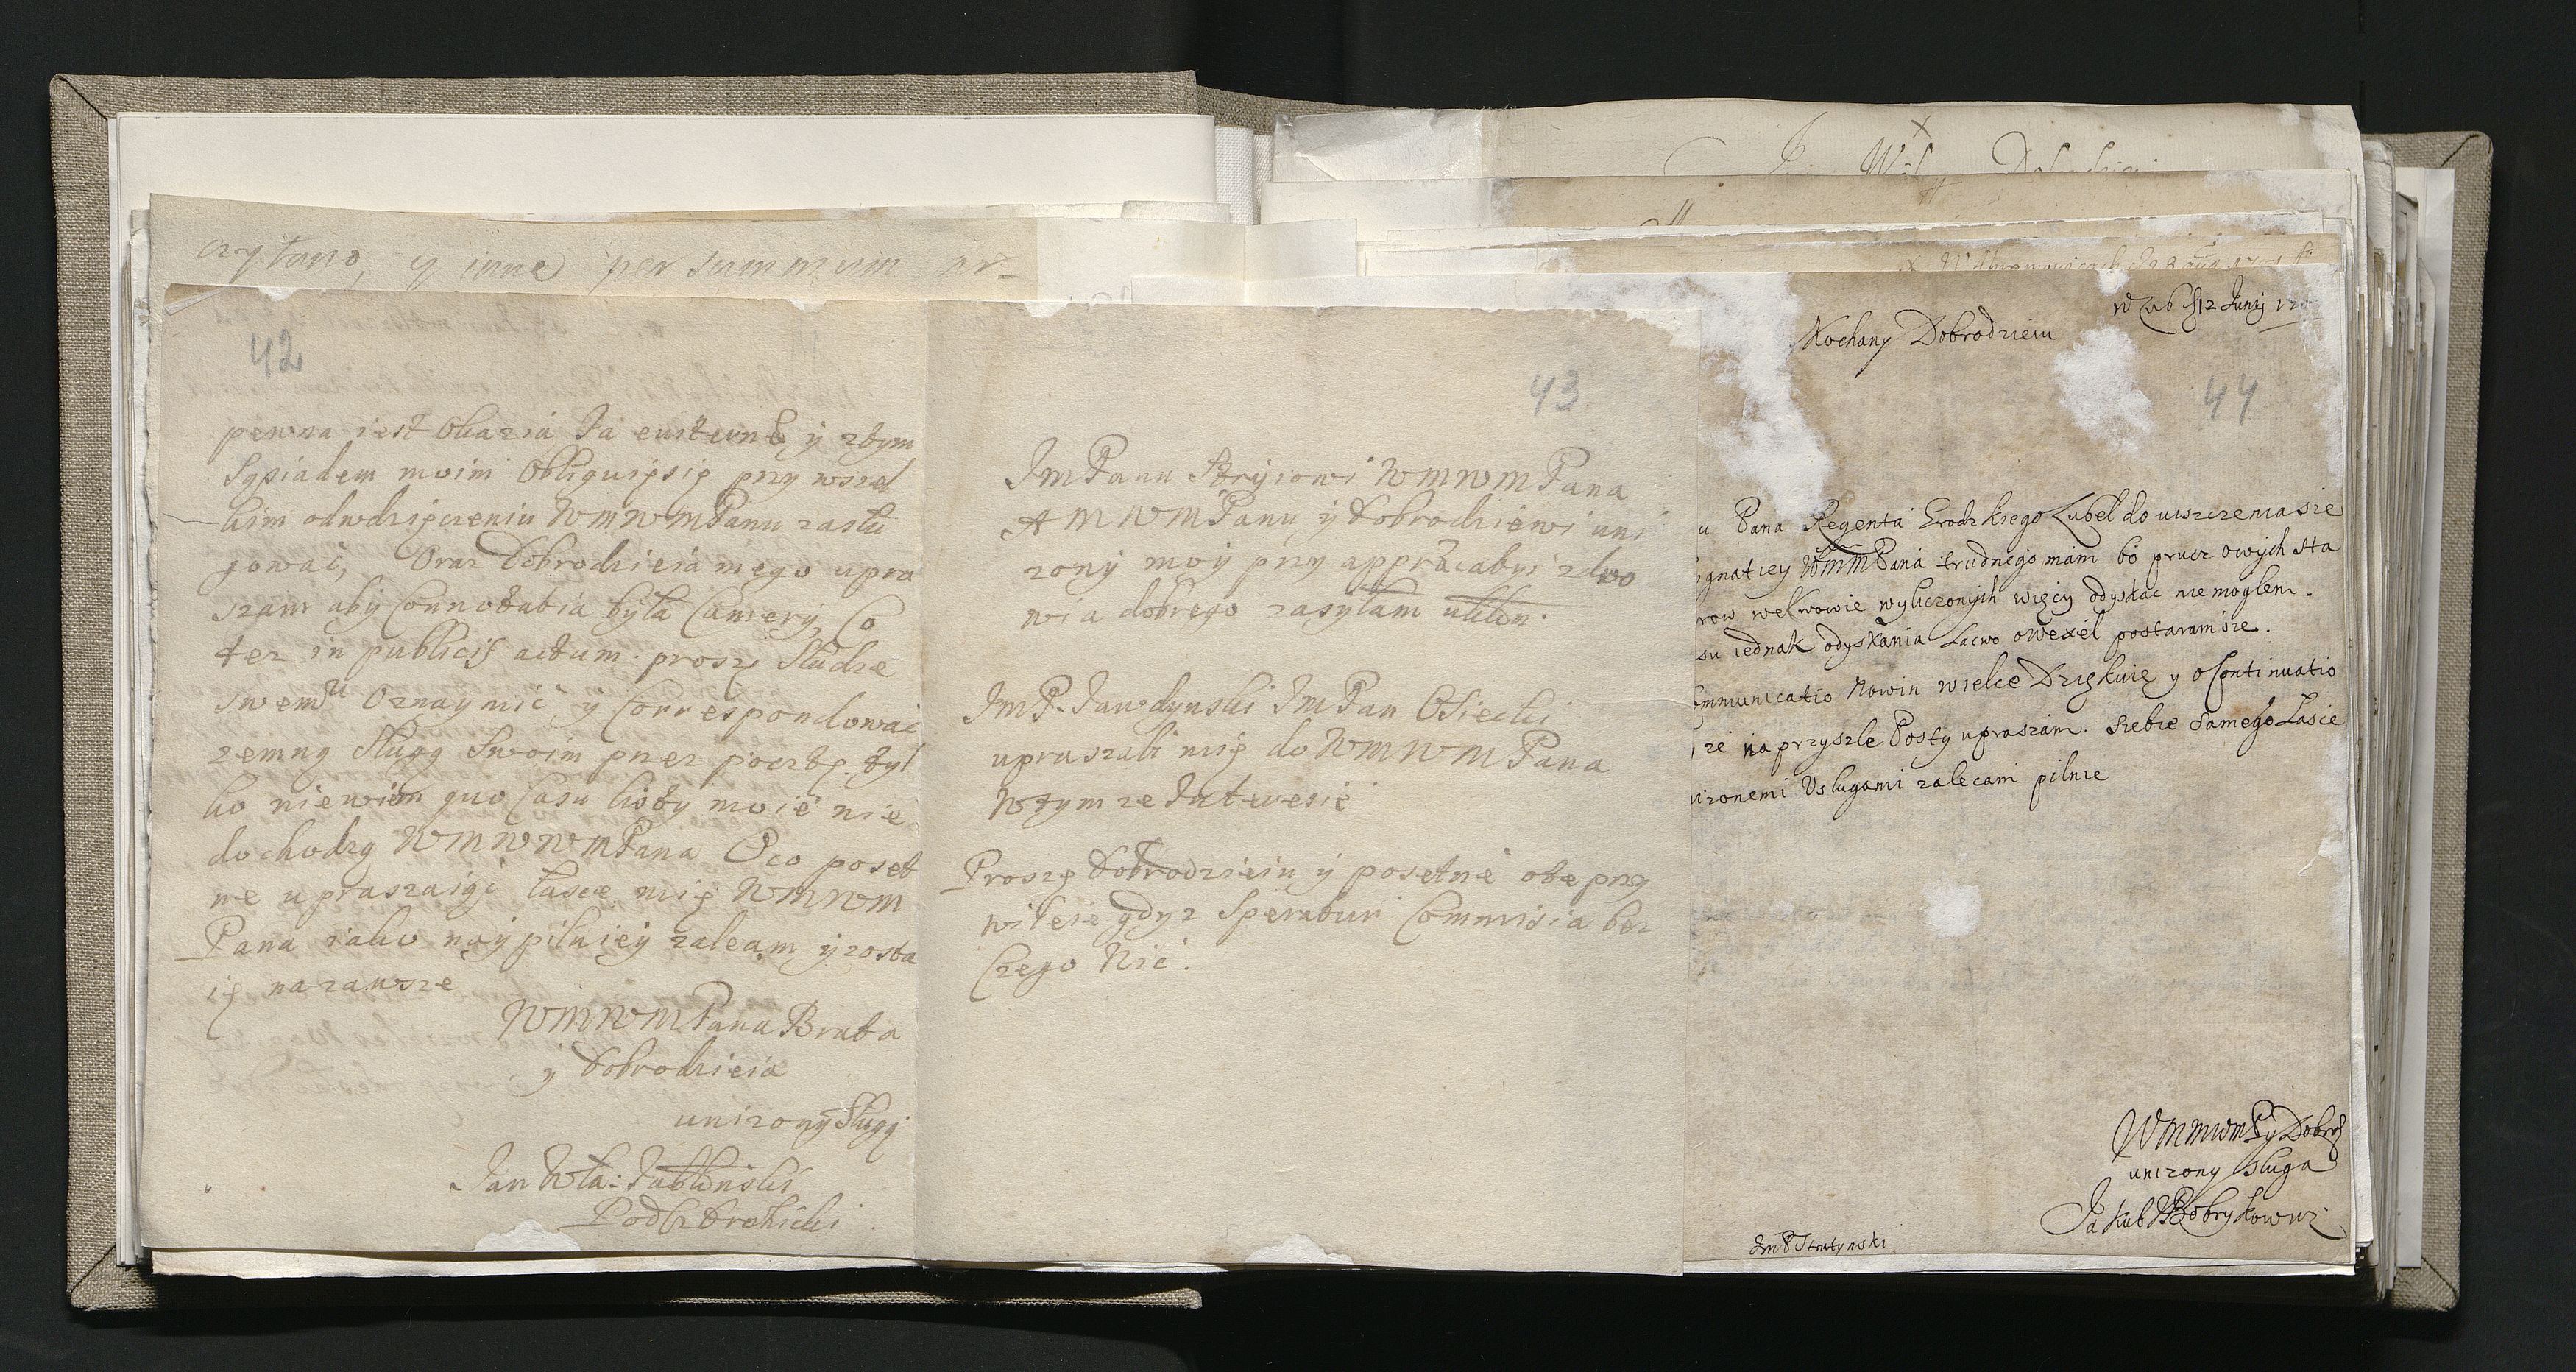 czytano, y inne per summum ar-
42
pewna iest Okazia Ja eustewnę y ztym
Sąsiadem moim Obliguięsię przy wszel
kim odwdzięczeniu WMWMPanu zasłu
gować, Oraz Dobrodzieia mego upra
szam aby Connotatia była Camery, Co
tez in publicis actum. proszę Słudze
swemu Oznaymić y Correspondować
zemną Sługą Swoim przez pocztę. tyl
ko niewiem quo Casu listy moie nie
dochodzą WMWWMPana Oco poset
ne upraszaiąc łasce mię WMWM
Pana iako naypilniey zalecam y zosta
ię nazawsze
WMWMPana Brata
y Dobrodzieia
unizony Sługą
Jan Wła: Jabłoński
Podcz Drohicki
43.
JmPanu Stryiowi WMWMPana
A MWMPanu y Dobrodziewi uni
zony moy przy apprecatyi zdro
wia dobrego zasyłam ukłon.
JmP. Jawdynski JmPan Osiecki
upraszali mię do WMWMPana
Wtym ze Interesie
Proszę Dobrodzieiu y posetnie ote przy
wileie gdyz Speratur Commisia bez
Czego Nic.
44
Kochany Dobrodzieiu
12 Junij
u Pana Regenta Grodzkiego Lubel do uiszczenia sie
ignatiey WMMPana trudnego mam bo prucz owych sta
row welwowie wyliczonych więcy odyskac niemoglem.
su iednak odyskania Lacwo owexel postaram sie.
ommunicatio Nowin wielce Dziękuię y oContinuatio
ze na przyszle Posty upraszam. Siebie Samego Lasce
nizonemi Uslugami zalecam pilnie
WMMWMP y Dobrdz
unizony Sluga
Jakub Bobrykowicz
JmP Stratynski